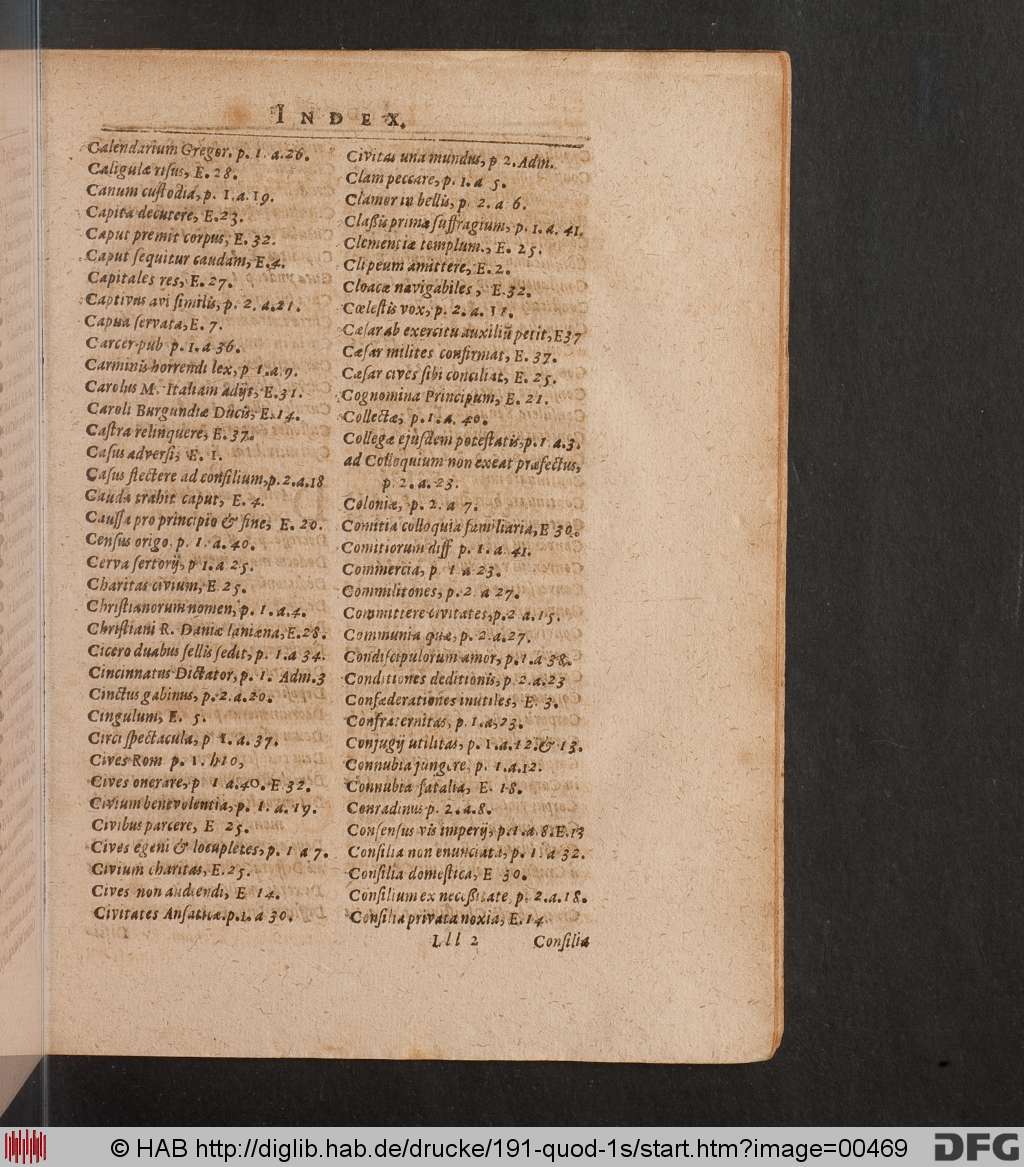 INDEX.
Calendarium Gregor. p. 1. a. 26.
Caligulæ risus, E. 28.
Canum custodia, p. 1. a. 19.
Capita decutere, E. 23.
Caput premit corpus, E. 32.
Caput sequitur caudam, E. 4.
Capitales res, E. 27.
Captivus avi similis, p. 2. a. 21.
Capua servata, E. 7.
Carcer pub p. 1. a 36.
Carminis horrendi lex, p 1. a 9.
Carolus M. Italiam adijt, E. 31.
Caroli Burgundiæ Ducis, E. 14.
Castra relinquere, E. 37.
Casus adversi, E. 1.
Casus flectere ad consilium, p. 2. a. 18
Cauda trahit caput, E. 4.
Caussa pro principio & fine, E. 20.
Census origo. p. 1. a. 40.
Cerva sertorij, p 1. a 25.
Charitas civium, E 25.
Christianorum nomen, p. 1. a. 4.
Christiani R. Daniæ laniæna, E. 28.
Cicero duabus sellis sedit, p. 1. a 34.
Cincinnatus Dictator, p. 1. Adm. 3
Cinctus gabinus, p. 2. a. 20.
Cingulum, E. 5.
Circi spectacula, p 1. a. 37.
Cives Rom p. 1. h 10,
Cives onerare, p 1 a. 40. E 32.
Civium benevolentia, p. 1. a. 19.
Civibus parcere, E 25.
Cives egeni & locupletes, p. 1 a 7.
Civium charitas, E. 25.
Cives non audiendi, E 14.
Civitates Ansaticæ. p. 1. a 30.
Civitas una mundus, p 2. Adm.
Clam peccare, p. 1. a 5.
Clamor in bellis, p. 2. a 6.
Claßis primæ suffragium, p. 1. a. 41.
Clementiæ templum., E. 25.
Clipeum amittere, E. 2.
Cloacæ navigabiles, E. 32.
Cœlestis vox, p. 2. a. 11.
Cæsar ab exercitu auxiliũ petit, E 37
Cæsar milites confirmat, E. 37.
Cæsar cives sibi conciliat, E. 25.
Cognomina Principum, E. 21.
Collectæ, p. 1. a. 40.
Collegæ ejusdem potestatis, p. 1 a. 3.
ad Colloquium non exeat præfectus,
p. 2. a. 23.
Coloniæ, p. 2. a 7.
Comitia colloquia familiaria, E 30.
Comitiorum diff p. 1. a 41.
Commercia, p 1 a 23.
Commilitones, p. 2 a 27.
Committere civitates, p. 2 a. 15.
Communia quæ, p. 2. a. 27.
Condiscipulorum amor, p. 1. a 38.
Conditiones deditionis, p. 2. a. 23
Confæderationes inutiles, E. 3.
Confraternitas, p. 1. a, 23.
Conjugij utilitas, p. 1. a. 12. & 13.
Connubia jungere, p. 1. a. 12.
Connubia fatalia, E. 18.
Conradinus p. 2. a. 8.
Consensus vis imperij, p. 1. a 8. E. 13
Consilia non enunciata, p. 1. a 32.
Consilia domestica, E 30.
Consilium ex neceßitate p. 2. a. 18.
Consilia privata noxia, E. 14
Lll 2 Consilia
© HAB http://diglib.hab.de/drucke/191-quod-1s/start.htm?image=00469 DFG